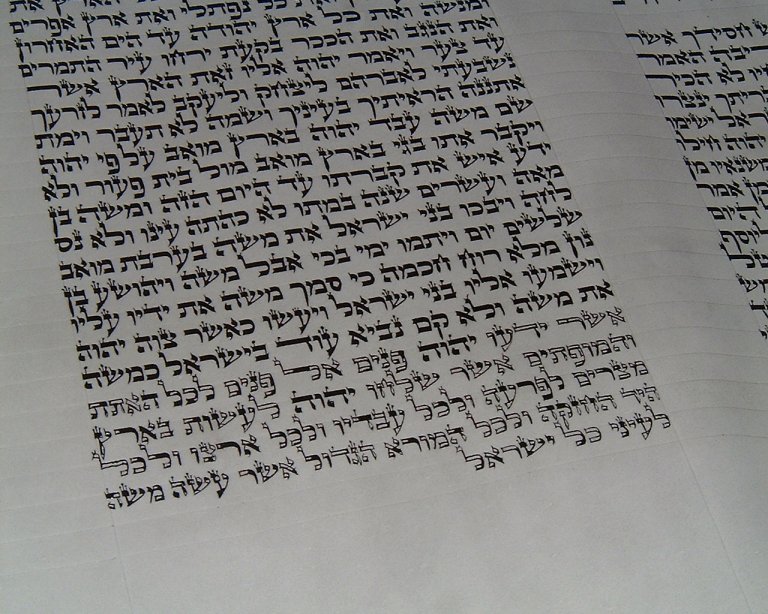 חסידך אשר
האמר
לא הכיר
יהוה חילו
ומשנאיו מן
אמר
היום
כל נפתלי ואת ארץ אפרים
ומנשה ואת כל ארץ יהודה עד הים האחרון
ואת הנגב ואת הככר בקעת ירחו עיר התמרים
עד צער ויאמר יהוה אליו זאת הארץ אשר
נשבעתי לאברהם ליצחק וליעקב לאמר לזרעך
אתננה הראיתיך בעיניך ושמה לא תעבר וימת
שם משה עבד יהוה בארץ מואב על פי יהוה
ויקבר אתו בגי בארץ מואב מול בית פעור ולא
ידע איש את קברתו עד היום הזה ומשה בן
מאה ועשרים שנה במתו לא כהתה עינו ולא נס
לחה ויבכו בני ישראל את משה בערבת מואב
שלשים יום ויתמו ימי בכי אבל משה ויהושע בן
נון מלא רוח חכמה כי סמך משה את ידיו עליו
וישמעו אליו בני ישראל ויעשו כאשר צוה יהוה
את משה ולא קם נביא עוד בישראל כמשה
אשר ידעו יהוה פנים אל פנים לכל האתת
והמופתים אשר שלחו יהוה לעשות בארץ
מצרים לפרעה ולכל עבדיו ולכל ארצו ולכל
היד החזקה ולכל המורא הגדול אשר עשה משה
לעיני כל ישראל